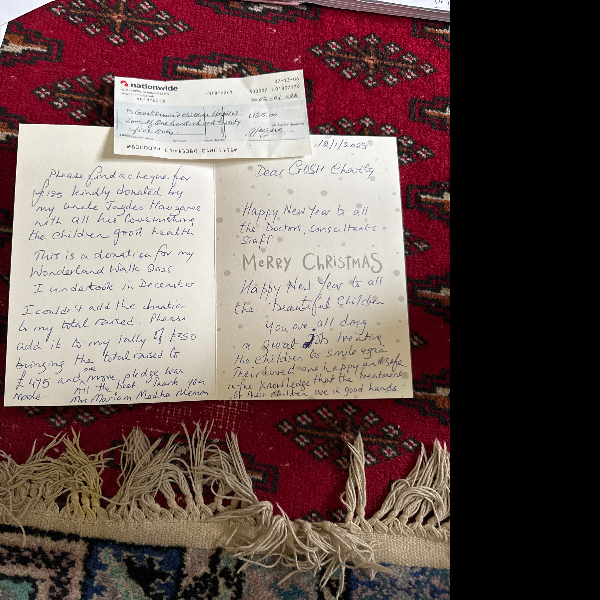 nationwide
£125.00
Please find a cheque for
£125 kindly donated by
my uncle
with all his love wishing
the children good health
This is a donation for my
Wonderland Walk 2025
I undertook in December
I couldn't add the donation
to my total raised. Please
add it to my tally of £350
bringing the total raised to
£475 and more pledge was
made. All the best Thank you
12/1/2025
Dear GOSH Charity
Happy New Year to all
the Doctors, Consultants
Staff
MERRY CHRISTMAS
Happy New Year to all
the beautiful Children
You are all doing
a Great Job treating
the children to smile again
Their loved one happy and safe
in the knowledge that the treatment
of their children are in good hands